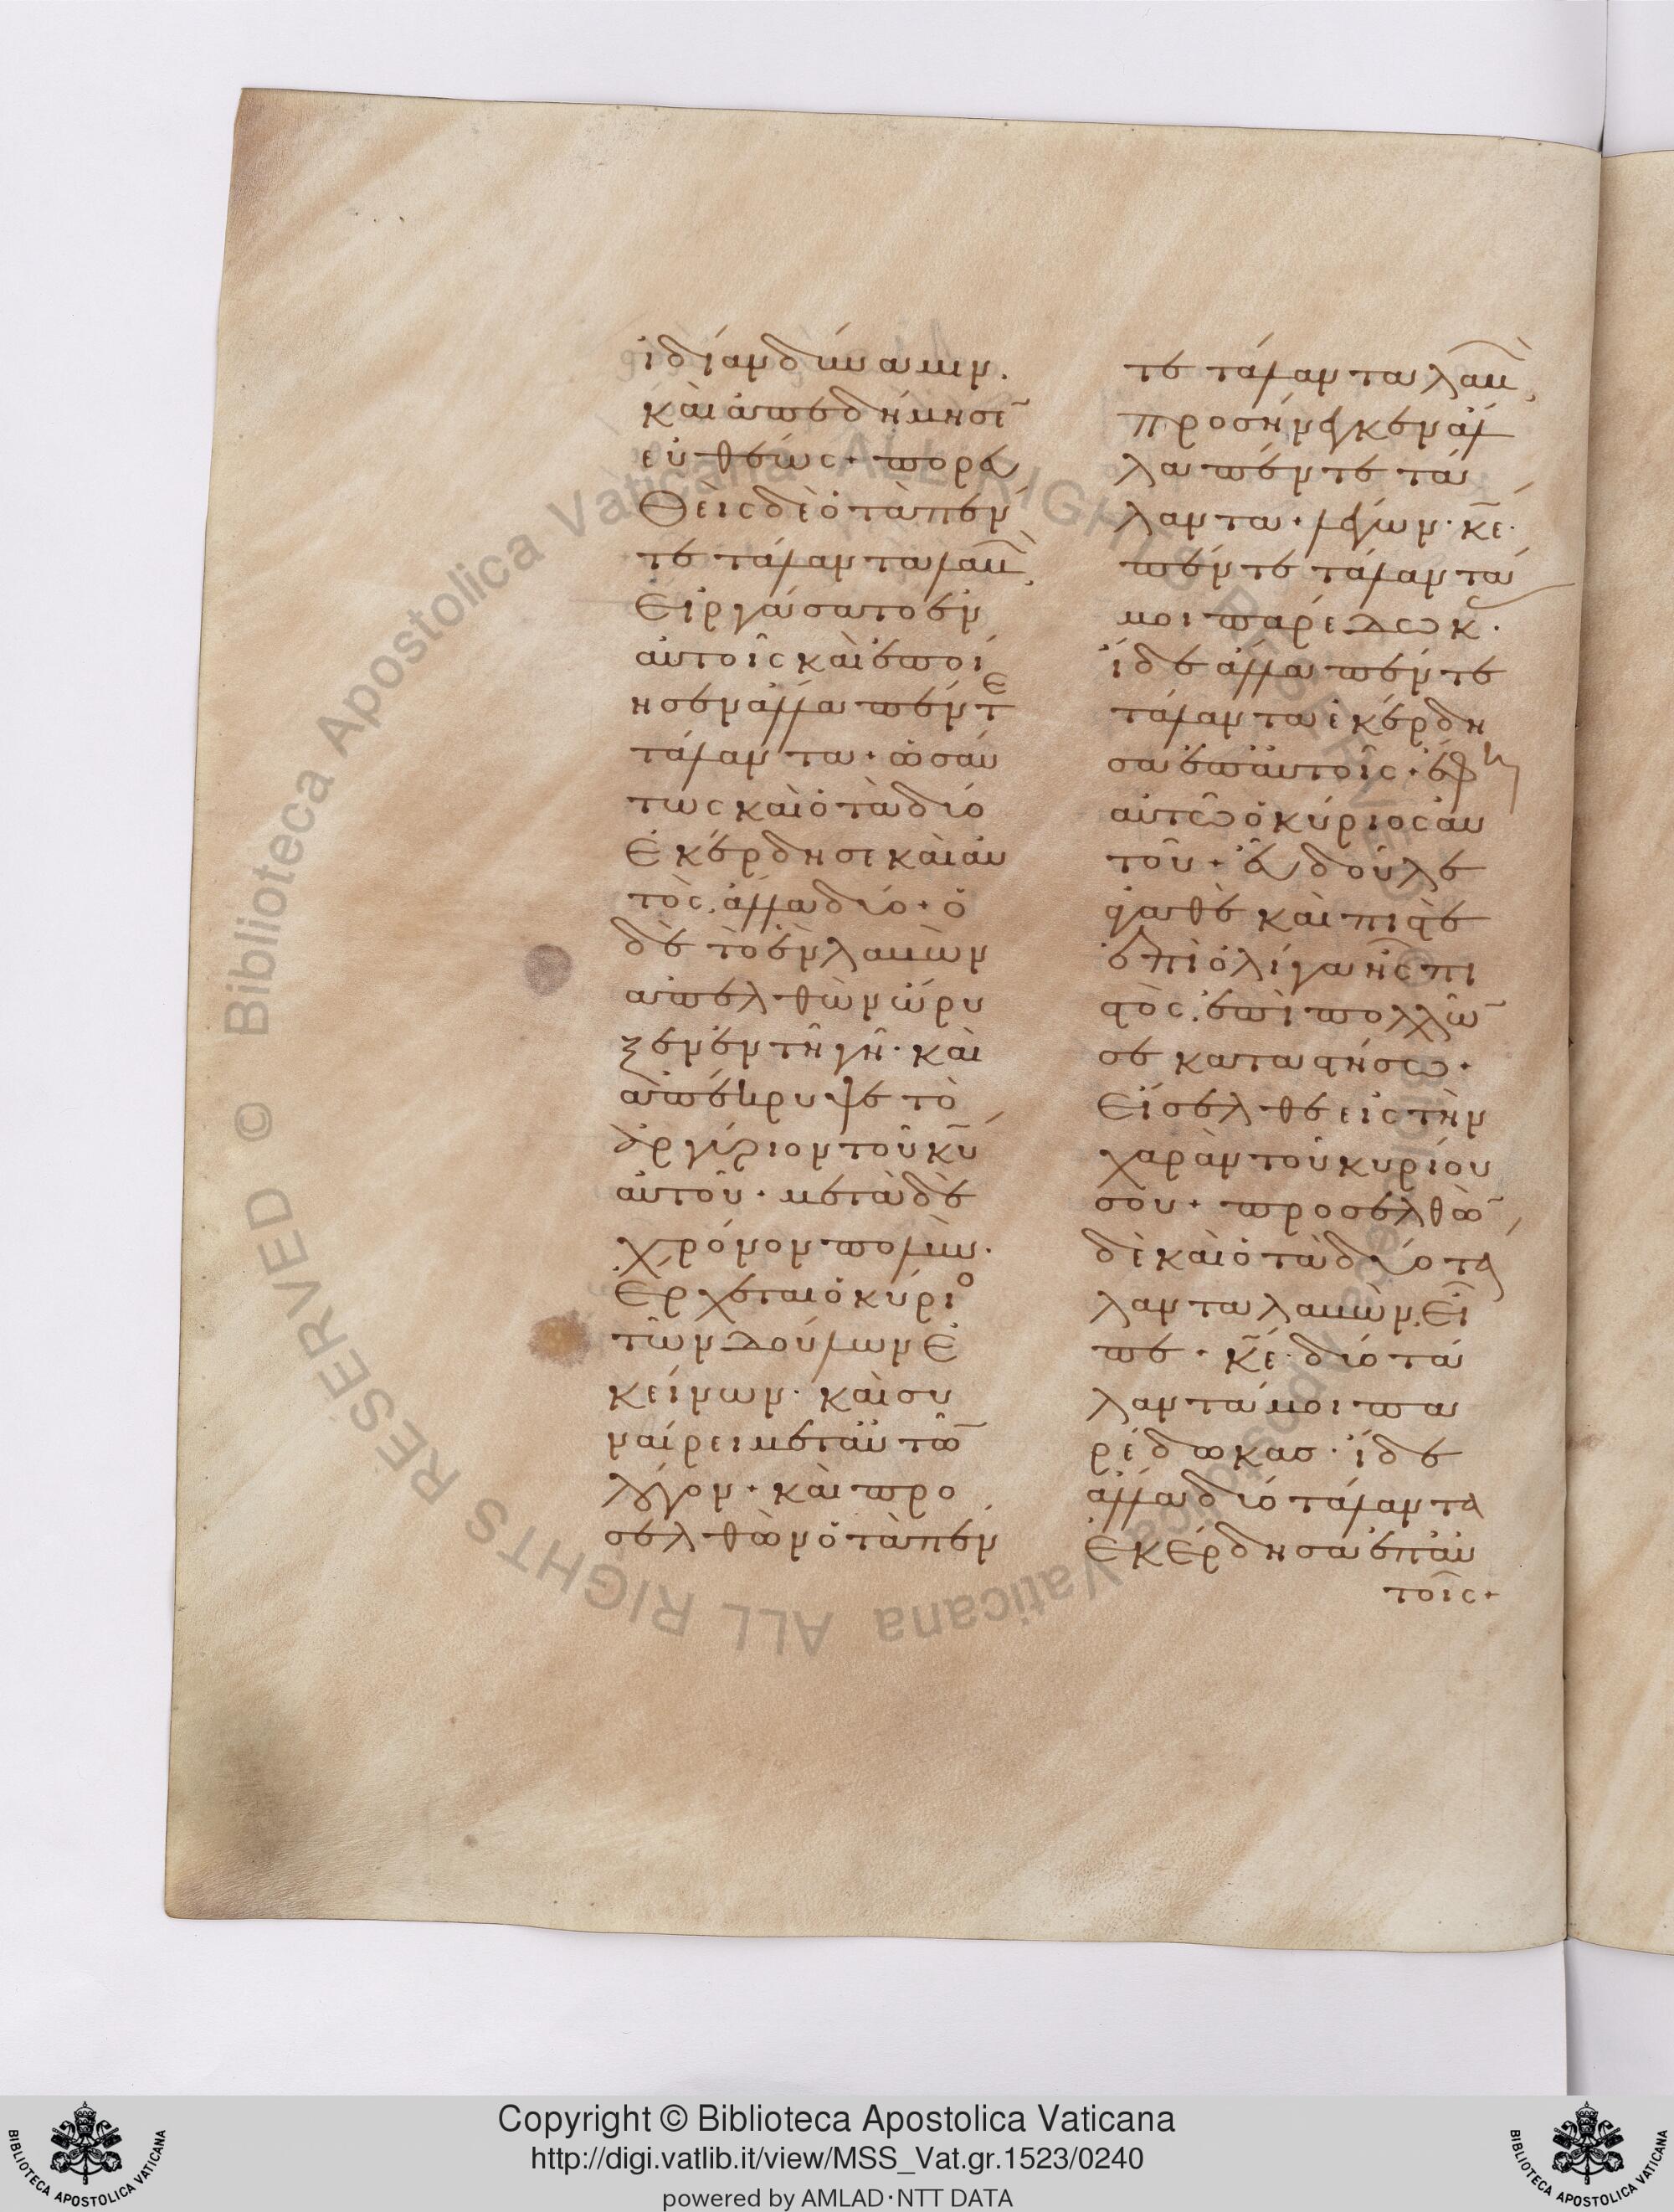 ἰδίαν δύναμιν.
καὶ ἀπεδήμησε̄
εὐθέως· πορευ
θεὶς δὲ ὁ τὰ πέν
τε τάλαντα λαβ̑ὼ,
εἰργάσατο ἐν
αὐτοῖς καὶ ἐποί
ησεν ἄλλα πέντε
τάλαντα· ὡσαύ
τως καὶ ὁ τὰ δύο
ἐκέρδησε καὶ αὐ
τὸς ἄλλα δύο· ὁ
δὲ τὸ ἓν λαβὼν
ἀπελθὼν ὤρυ
ξεν ἐν τῆ γῆ· καὶ
ἀπέκρυψε τὸ
ἀργύριον τοῦ κ̄υ
αὐτοῦ· μετὰ δὲ
χρόνον πολὺν.
ἔρχεται ὁ κύριο
τῶν δούλων ἐ
κείνων· καὶ συ
ναίρει μετ αὐτῶ̄
λόγον· καὶ προ
σελθὼν ὁ τὰ πέν
τε τάλαντα λαβ̑ὼ,
προσήνεγκεν ἄλ
λα πέντε τά
λαντα· λέγων· κ̄ε·
πέντε τάλαντά
μοι παρέδωκ·
ἴδε ἄλλα πέντε
τάλαντα ἐκέρδη
σα ἐπ αὐτοῖς· ἔφη
αὐτῶ ὁ κύριος αὐ
τοῦ· εὖ δοῦλε
ἀγαθὲ καὶ πιστὲ
ἐπὶ ὀλίγα ἦς πι
στὸς. ἐπὶ πολλῶ̄
σε καταστήσω·
εἴσελθε εἰς τὴν
χαρὰν τοῦ κυρίου
σου· προσελθὼ̄
δὲ καὶ ὁ τὰ δύο τά
λαντα λαβὼν, εἶ
πε· κ̄ε· δύο τά
λαντά μοι πα
ρέδωκασ· ἴδε
ἄλλα δύο τάλαντα
ἐκέρδησα ἐπ αὐ
τοῖς·
Copyright © Biblioteca Apostolica Vaticana
http://digi.vatlib.it/view/MSS_Vat.gr.1523/0240
powered by AMLAD·NTT DATA
BIBLIOTECA APOSTOLICA VATICANA
BIBLIOTECA APOSTOLICA VATICANA
© Biblioteca Apostolica Vaticana ALL RIGHTS RESERVED © Biblioteca Apostolica Vaticana ALL RIGHTS RESERVED